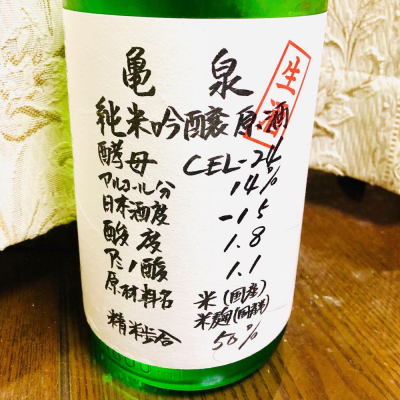 亀泉
生酒
純米吟醸原酒
酵母 CEL-24
アルコール分 14%
日本酒度 -15
酸度 1.8
アミノ酸 1.1
原材料名 米(国産)
米麹(国産米)
精米歩合 50%